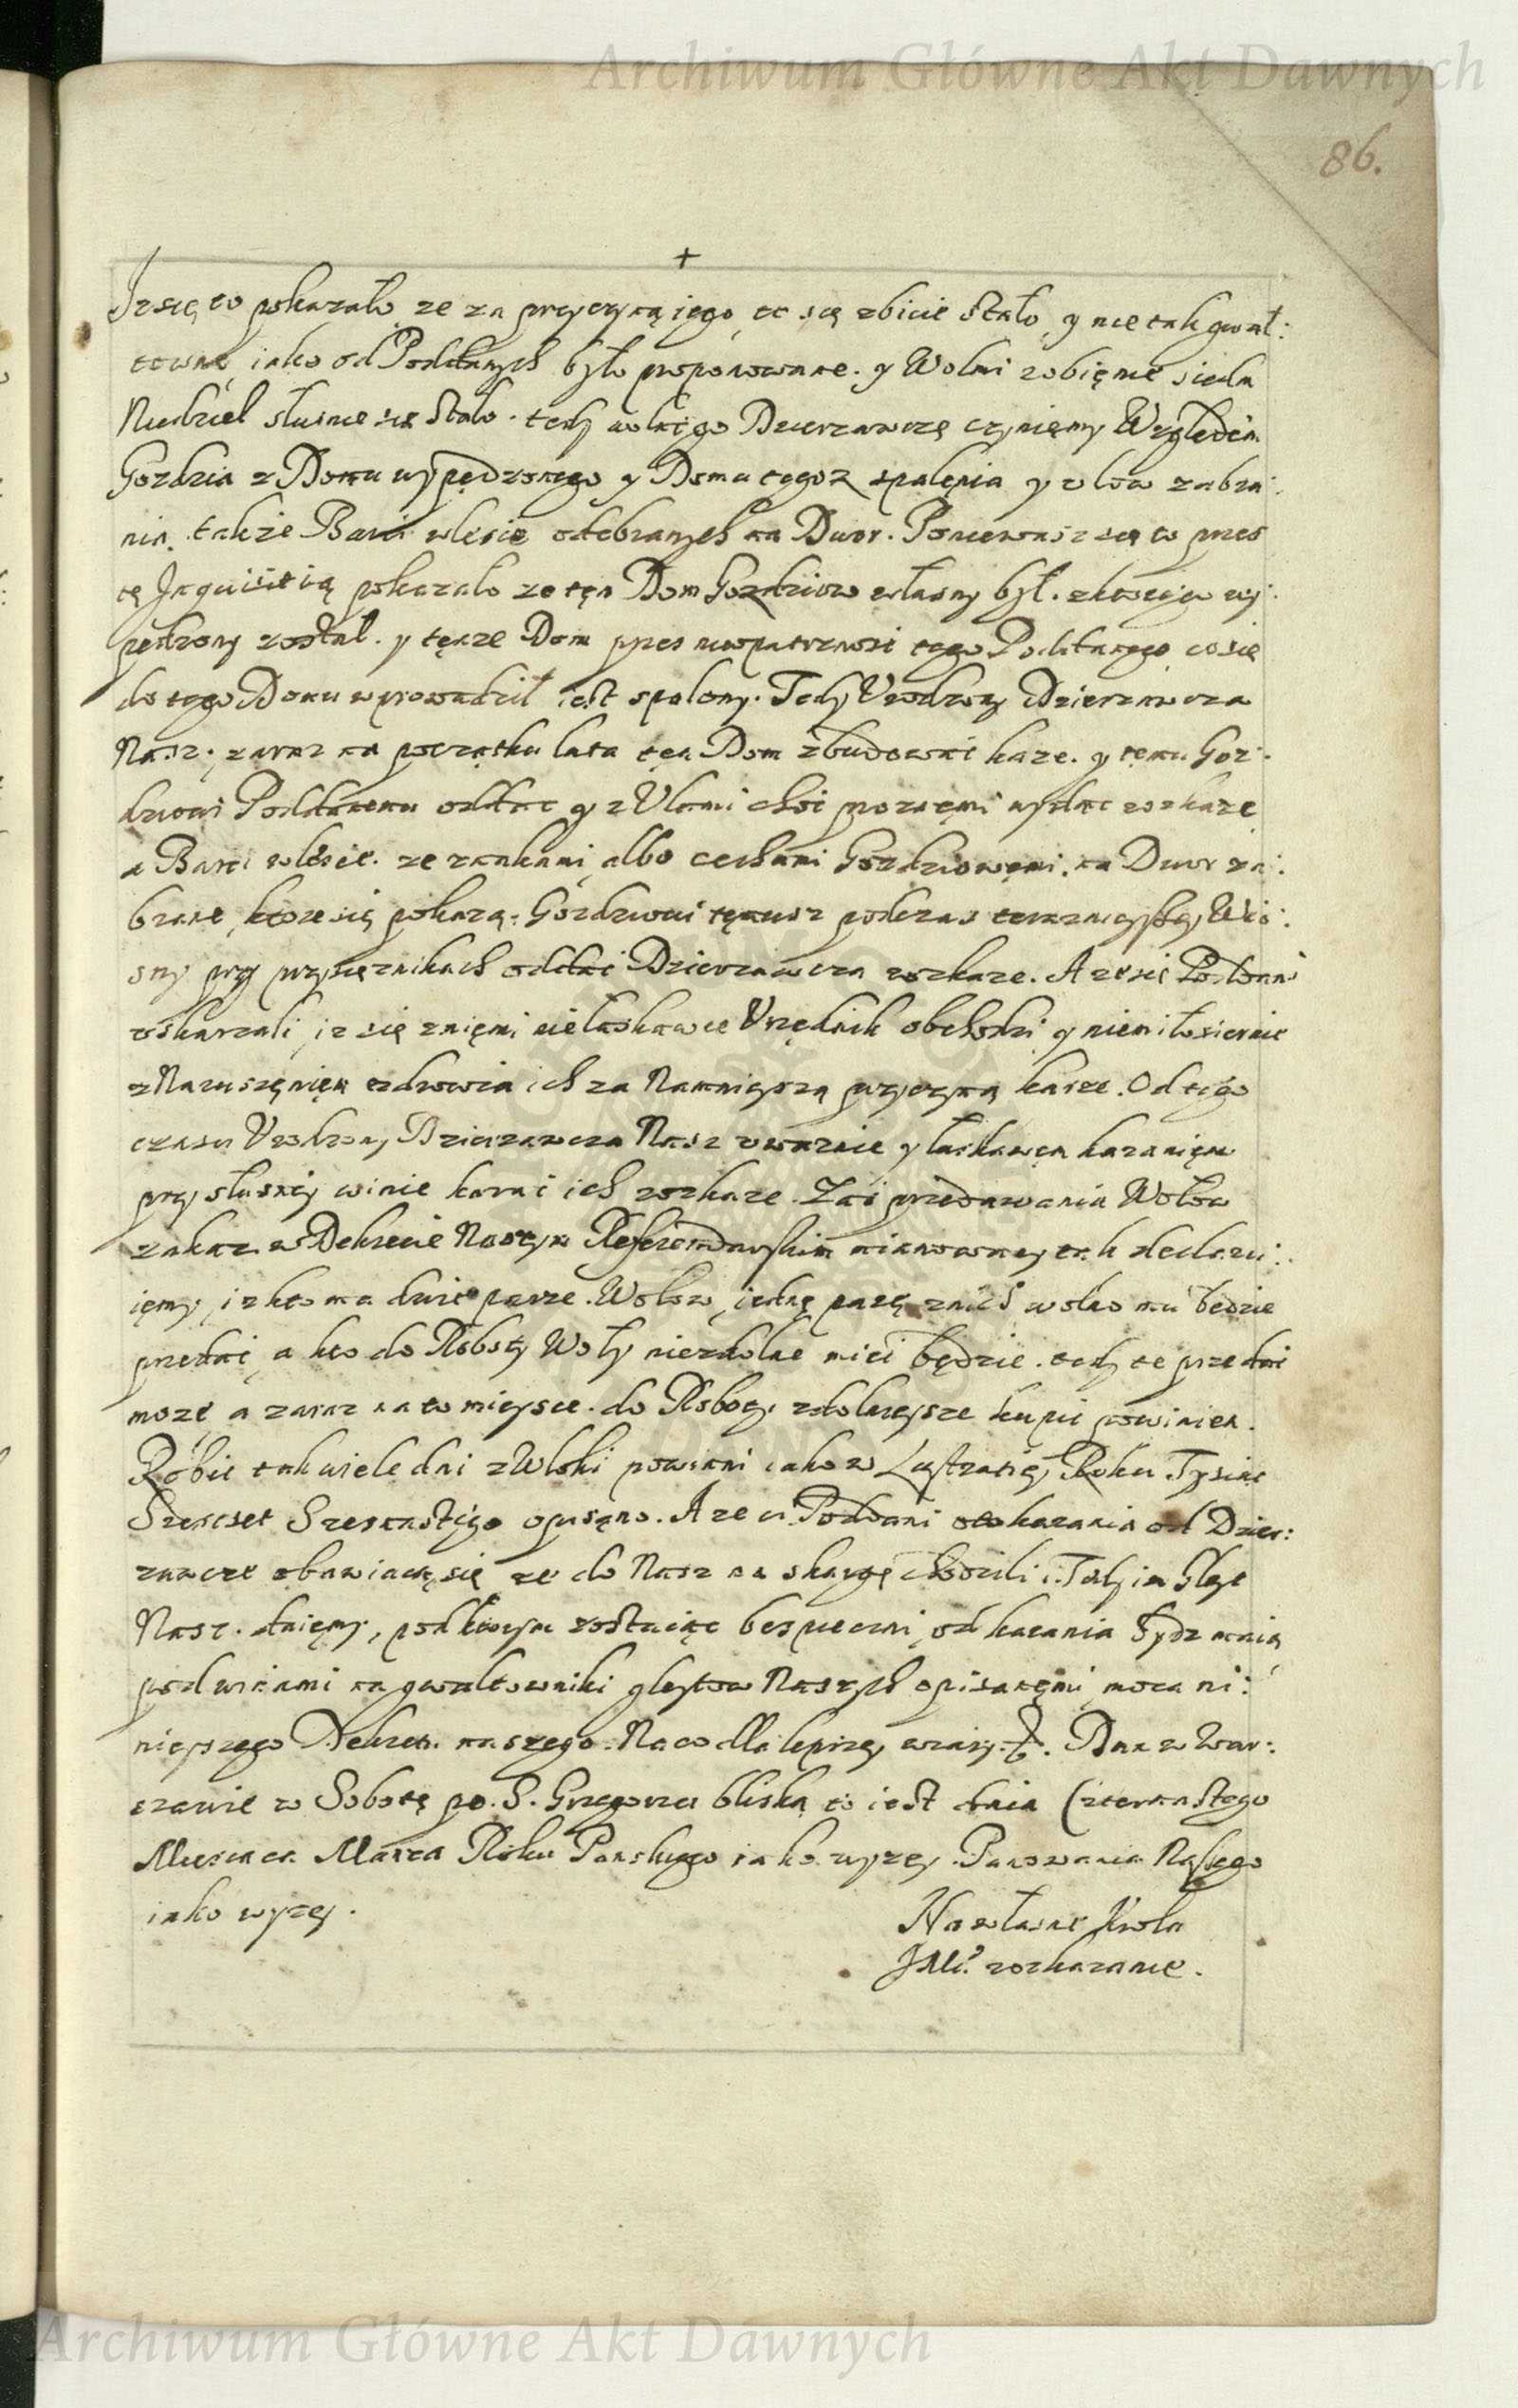 Archiwum Główne Akt Dawnych
86.
Iz się to pokazało ze za przyczyną iego to się zbicie stało, y nie tak gwał:
towne iako od Poddanych było proponowane. y Wolmi robięnie siedm
Niedziel słusnie się stało. tedy wolnego Dzierzawczę czynięmy Względem
Gozdzia z Domu wypędzonego y Domu tegoz spalęnia y Ulow zabra:
nia. także Barci w lesie odebranych na Dwor. Poniewasz się to przes
tę Inquisitią pokazało ze tęn Dom Gozdziow własny był. z ktorego wy:
pędzony został. y tęnze Dom przes nieopatrznosc tego Poddanego, co się
do tego Domu wprowadził iest spalony. Tedy Urodzony Dzierzawcza
Nasz. zaraz na początku lata tęn Dom zbudowac kaze. y temu Goz:
dziowi Poddanemu oddac y z Ulami choc proznęmi wydac rozkaze
a Barci w lesie. ze znakami albo cechami Gozdziowęmi. na Dwor za:
brane, ktore się pokazą. Gozdziowi tęmusz podczas teraznieyszey Wio:
sny przy przysięznikach oddac Dzierzawcza rozkaze. A ze się Poddani
uskarzali, iz się znięmi nie łaskawie Urzędnik obchodzi y niemiłosiernie
z Naruszęnięm zdrowia ich za Namnieyszą przyczyną karze. Od tego
czasu Urodzony Dzierzawcza Nasz uwaznie y łaskawęm karanięm
przy słusney winie karac ich rozkaze. Zas przedawania Wołow
zakaz w Dekrecie Naszym Referendarskim mianowany tak declaru:
ięmy, iz kto ma dwie parze. Wołow, iednę parę znich wolno mu będzie
przedac, a kto do Roboty Woły niezdolne miec będzie. tedy te przedac
moze, a zaraz na to mieysce. do Roboty zdolnieysze kupic powinien.
Robic tak wiele dni z Włoki powinni iako w Lustratiey Roku Tysiąc
Szescset Szesnastego opisano. A ze ci Poddani oto karania od Dzier:
zawcze obawiaią się ze do Nasz na skargę chodzili. Tedy im Gleyt
Nasz. daięmy, pod ktorym zostaiąc bespieczni, od karania bydz maią
pod winami na gwałtowniki gleytow Naszych opisanęmi, mocą ni:
nieyszego Dekretu naszego. Na co dla lepszey wiary. Dan w War:
szawie w Sobotę po. S. Grzegorzu bliską to iest dnia Czternastego
Miesiąca Marca Roku Panskiego iako wyzey. Panowania Naszego
iako wyzey.
Na własne Krola
JMci rozkazanie.
Archiwum Główne Akt Dawnych